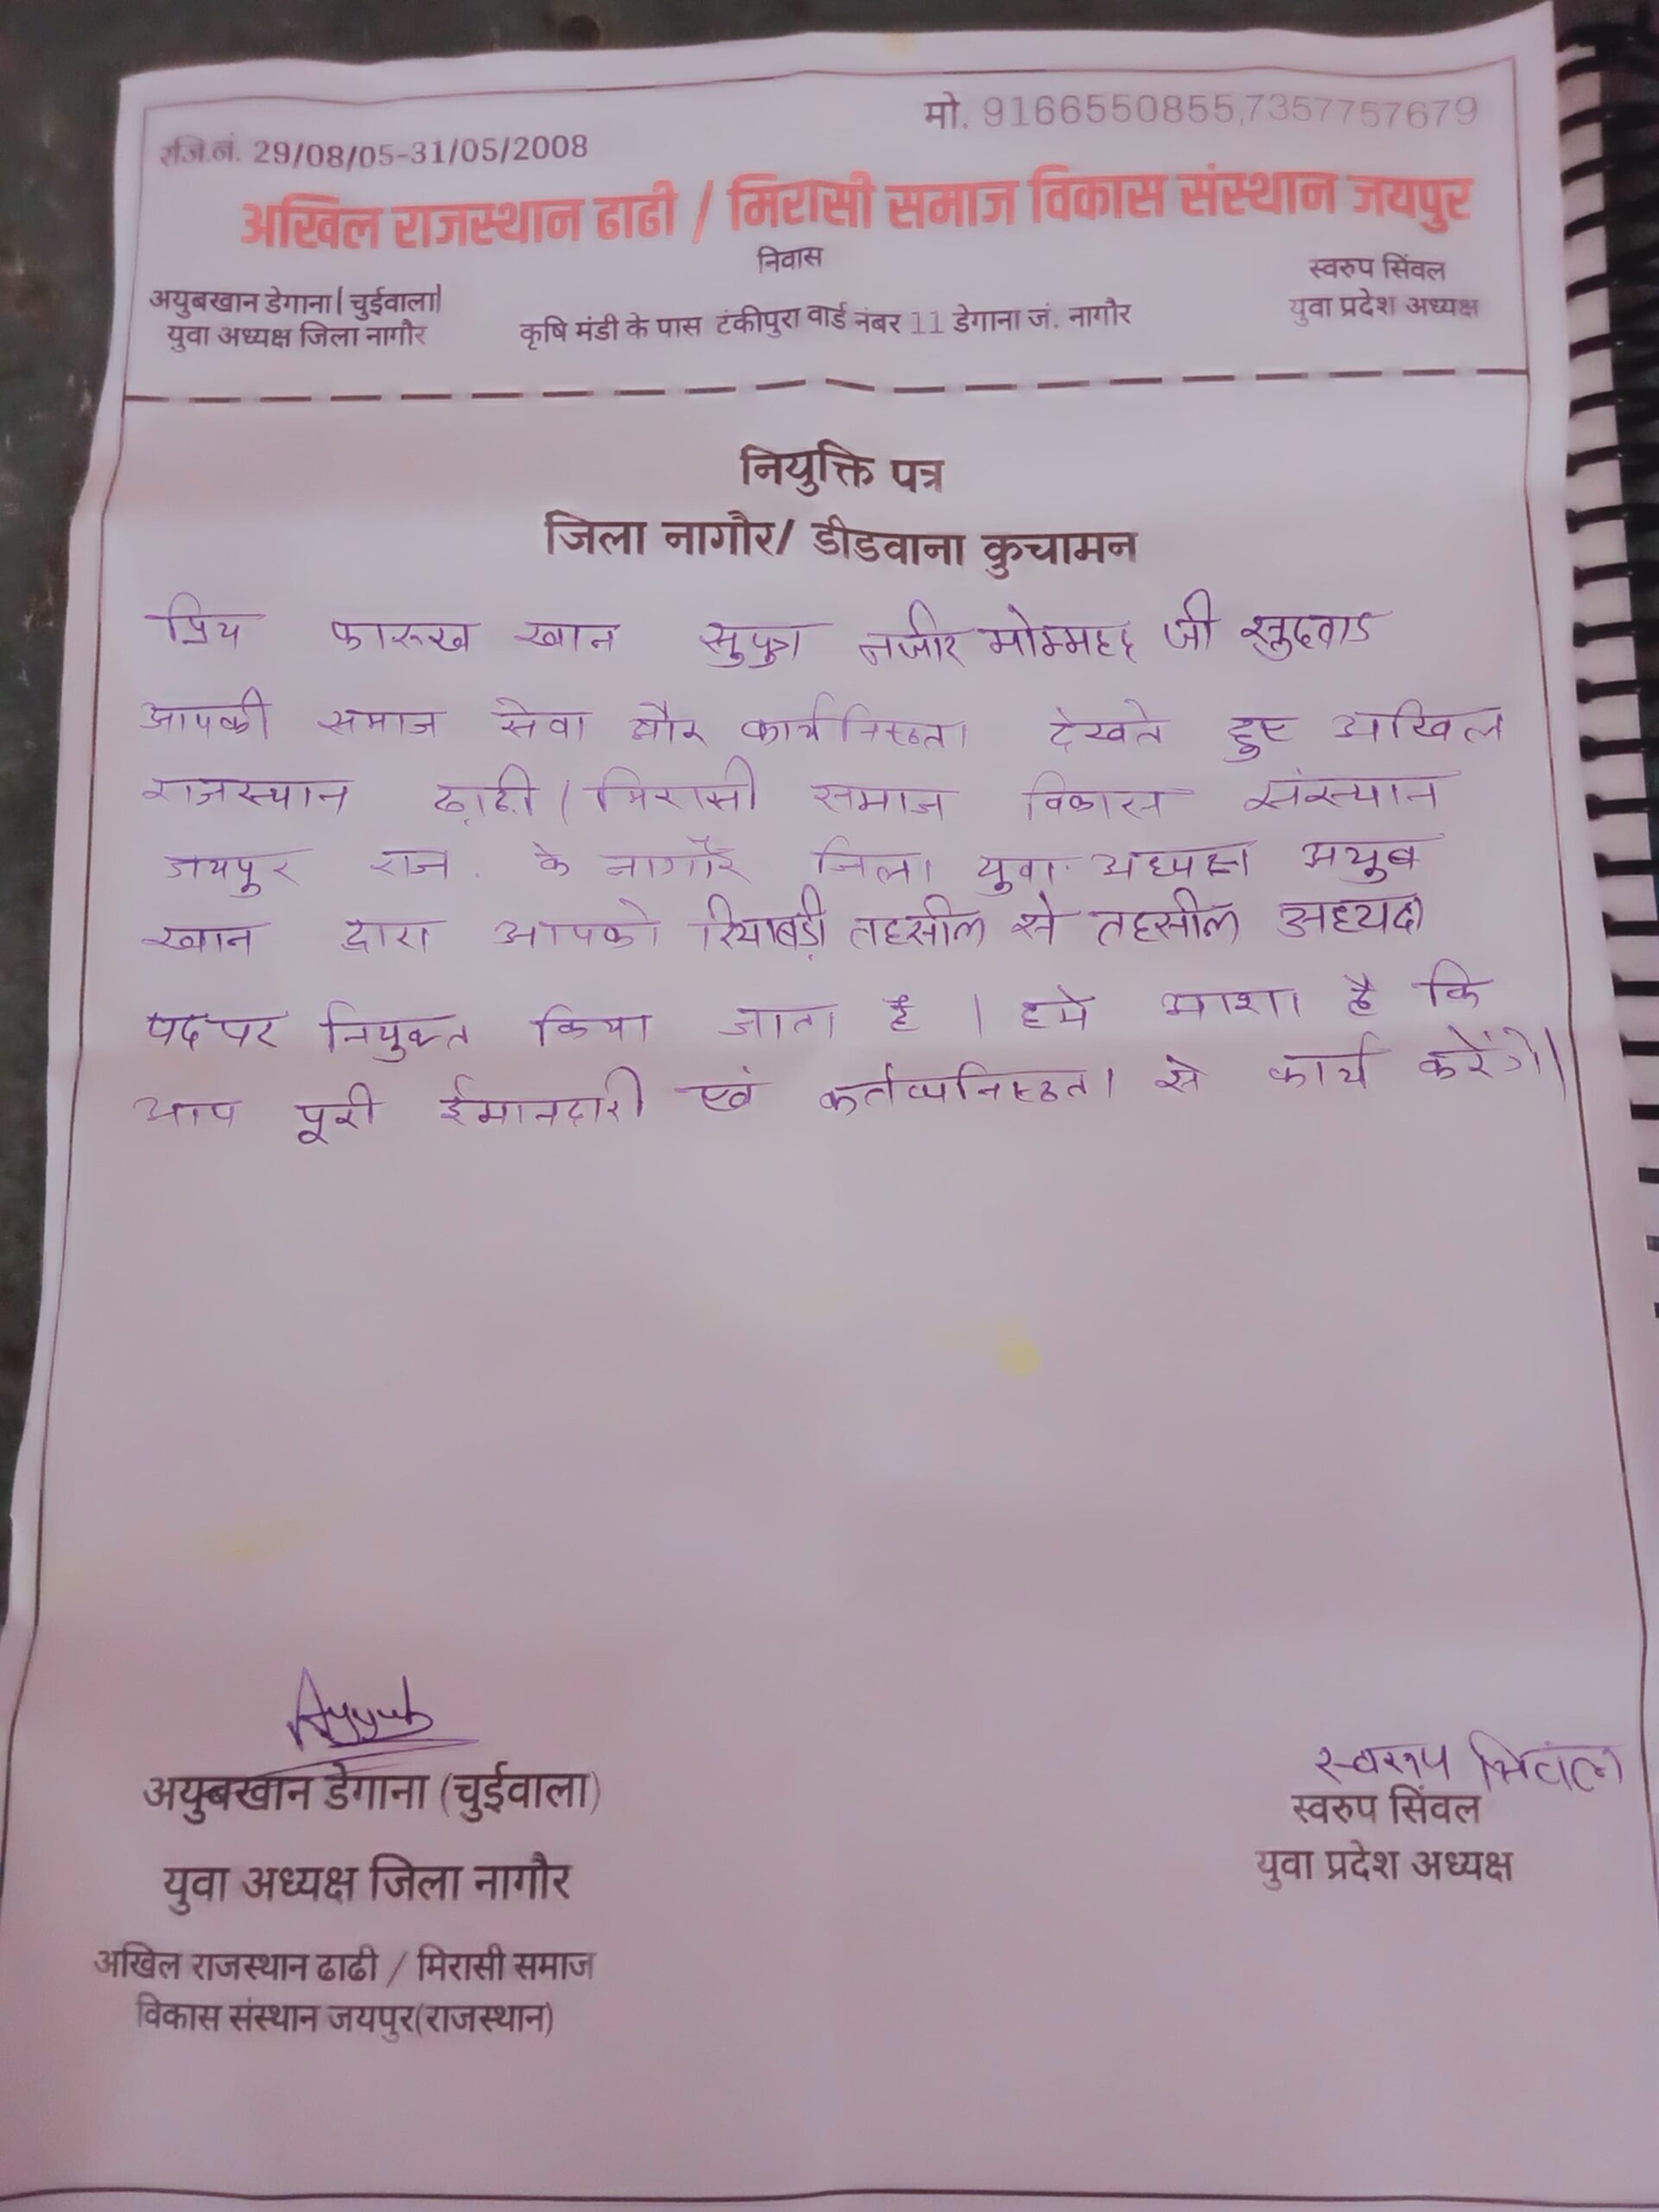 मो. 9166550855,7357757679
रजि.नं. 29/08/05-31/05/2008
अखिल राजस्थान ढाढी / मिरासी समाज विकास संस्थान जयपुर
निवास
अयुबखान डेगाना( चुईवाला)
युवा अध्यक्ष जिला नागौर
कृषि मंडी के पास टंकीपुरा वार्ड नंबर 11 डेगाना जं. नागौर
स्वरुप सिंवल
युवा प्रदेश अध्यक्ष
नियुक्ति पत्र
जिला नागौर/ डीडवाना कुचामन
प्रिय फारूख खान सुपुत्र नजीर मोम्मद जी सुदवाड
आपकी समाज सेवा और कार्यनिष्ठता देखते हुए अखिल
राजस्थान ढ़ाढ़ी / मिरासी समाज विकास संस्थान
जयपुर राज. के नागौर जिला युवा अध्यक्ष अयुब
खान द्वारा आपको रियाबड़ी तहसील से तहसील अध्यक्ष
पद पर नियुक्त किया जाता है । हमे आशा है कि
आप पूरी ईमानदारी एवं कर्तव्यनिष्ठता से कार्य करेंगे।
Ayyub
अयुबखान डेगाना (चुईवाला)
युवा अध्यक्ष जिला नागौर
अखिल राजस्थान ढाढी / मिरासी समाज
विकास संस्थान जयपुर(राजस्थान)
स्वरूप सिंवल
स्वरुप सिंवल
युवा प्रदेश अध्यक्ष